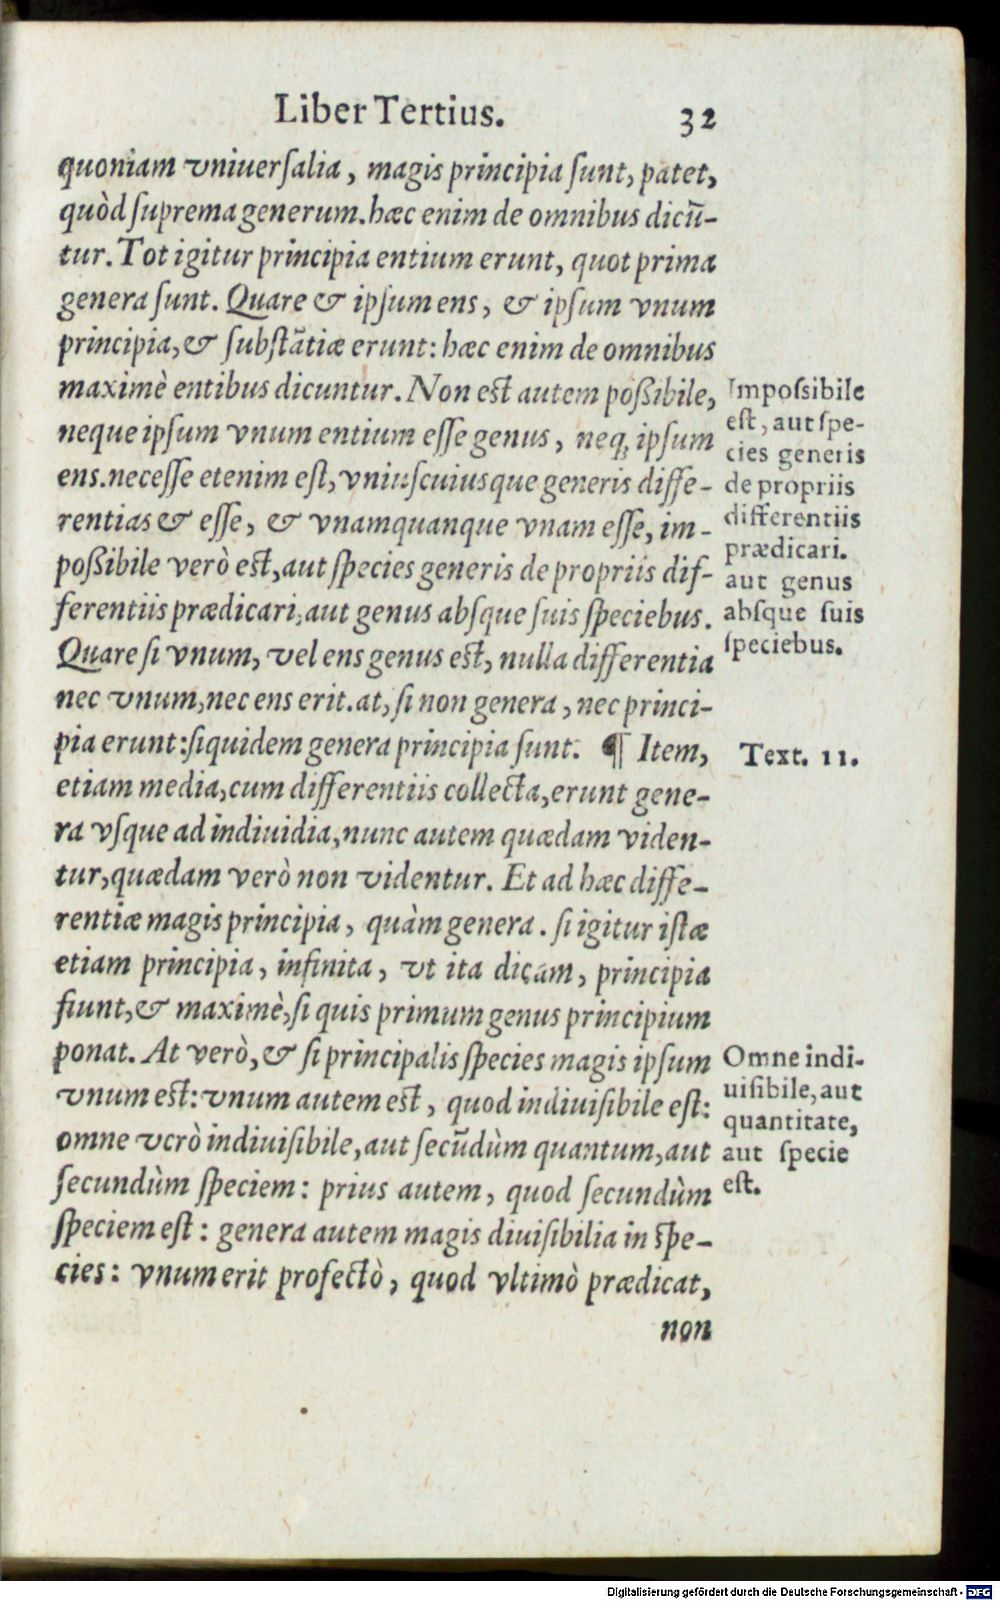 Liber Tertius. 32
quoniam vniuerſalia, magis principia ſunt, patet,
quòd ſuprema generum. hæc enim de omnibus dicũ-
tur. Tot igitur principia entium erunt, quot prima
genera ſunt. Quare & ipſum ens, & ipſum vnum
principia, & ſubſtãtiæ erunt: hæc enim de omnibus
maximè entibus dicuntur. Non eſt autem poßibile,
neque ipſum vnum entium eſſe genus, neq; ipſum
ens. neceſſe etenim eſt, vniuſcuiusque generis diffe-
rentias & eſſe, & vnamquanque vnam eſſe, im-
poßibile verò eſt, aut ſpecies generis de propriis dif-
ferentiis prædicari, aut genus abſque ſuis ſpeciebus.
Quare ſi vnum, vel ens genus eſt, nulla differentia
nec vnum, nec ens erit. at, ſi non genera, nec princi-
pia erunt: ſiquidem genera principia ſunt. ¶ Item,
etiam media, cum differentiis collecta, erunt gene-
ra vſque ad indiuidia, nunc autem quædam viden-
tur, quædam verò non videntur. Et ad hæc diffe-
rentiæ magis principia, quàm genera. ſi igitur iſtæ
etiam principia, infinita, vt ita dicam, principia
fiunt, & maximè, ſi quis primum genus principium
ponat. At verò, & ſi principalis ſpecies magis ipſum
vnum eſt: vnum autem eſt, quod indiuiſibile eſt:
omne verò indiuiſibile, aut ſecũdùm quantum, aut
ſecundùm ſpeciem: prius autem, quod ſecundùm
ſpeciem eſt: genera autem magis diuiſibilia in ſpe-
cies: vnum erit profectò, quod vltimò prædicat,
non
Impoſsibile
eſt, aut ſpe-
cies generis
de propriis
differentiis
prædicari.
aut genus
abſque ſuis
ſpeciebus.
Text. 11.
Omne indi-
uiſibile, aut
quantitate,
aut ſpecie
eſt.
Digitalisierung gefördert durch die Deutsche Forschungsgemeinschaft - DFG